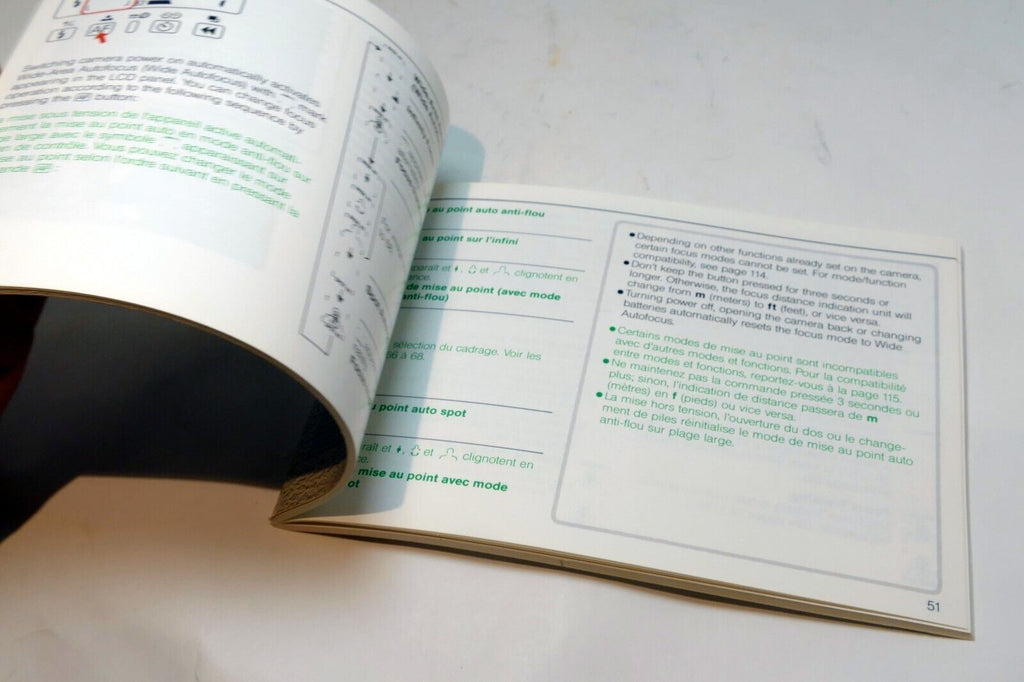 Switching camera power on automatically activates
Wide-Area Autofocus (Wide Autofocus) with mark
appearing in the LCD panel. You can change focus
operation according to the following sequence by
pressing the AF button:
mise sous tension de l'appareil active automati-
ment la mise au point auto en mode anti-flou sur
large avec le symbole apparaissant sur
de contrôle. Vous pouvez changer le mode
se au point selon l'ordre suivant en pressant la
nde AF:
au point auto anti-flou
au point sur l'infini
paraît et , et , clignotent en
ance.
de mise au point (avec mode
anti-flou)
sélection du cadrage. Voir les
66 à 68.
u point auto spot
raît et , et clignotent en
ce.
mise au point avec mode
ot
●Depending on other functions already set on the camera,
certain focus modes cannot be set. For mode/function
compatibility, see page 114.
●Don't keep the button pressed for three seconds or
longer. Otherwise, the focus distance indication unit will
change from m (meters) to ft (feet), or vice versa.
●Turning power off, opening the camera back or changing
batteries automatically resets the focus mode to Wide
Autofocus.
●Certains modes de mise au point sont incompatibles
avec d'autres modes et fonctions. Pour la compatibilité
entre modes et fonctions, reportez-vous à la page 115.
●Ne maintenez pas la commande pressée 3 secondes ou
plus; sinon, l'indication de distance passera de m
(mètres) en f (pieds) ou vice versa.
●La mise hors tension, l'ouverture du dos ou le change-
ment de piles réinitialise le mode de mise au point auto
anti-flou sur plage large.
51